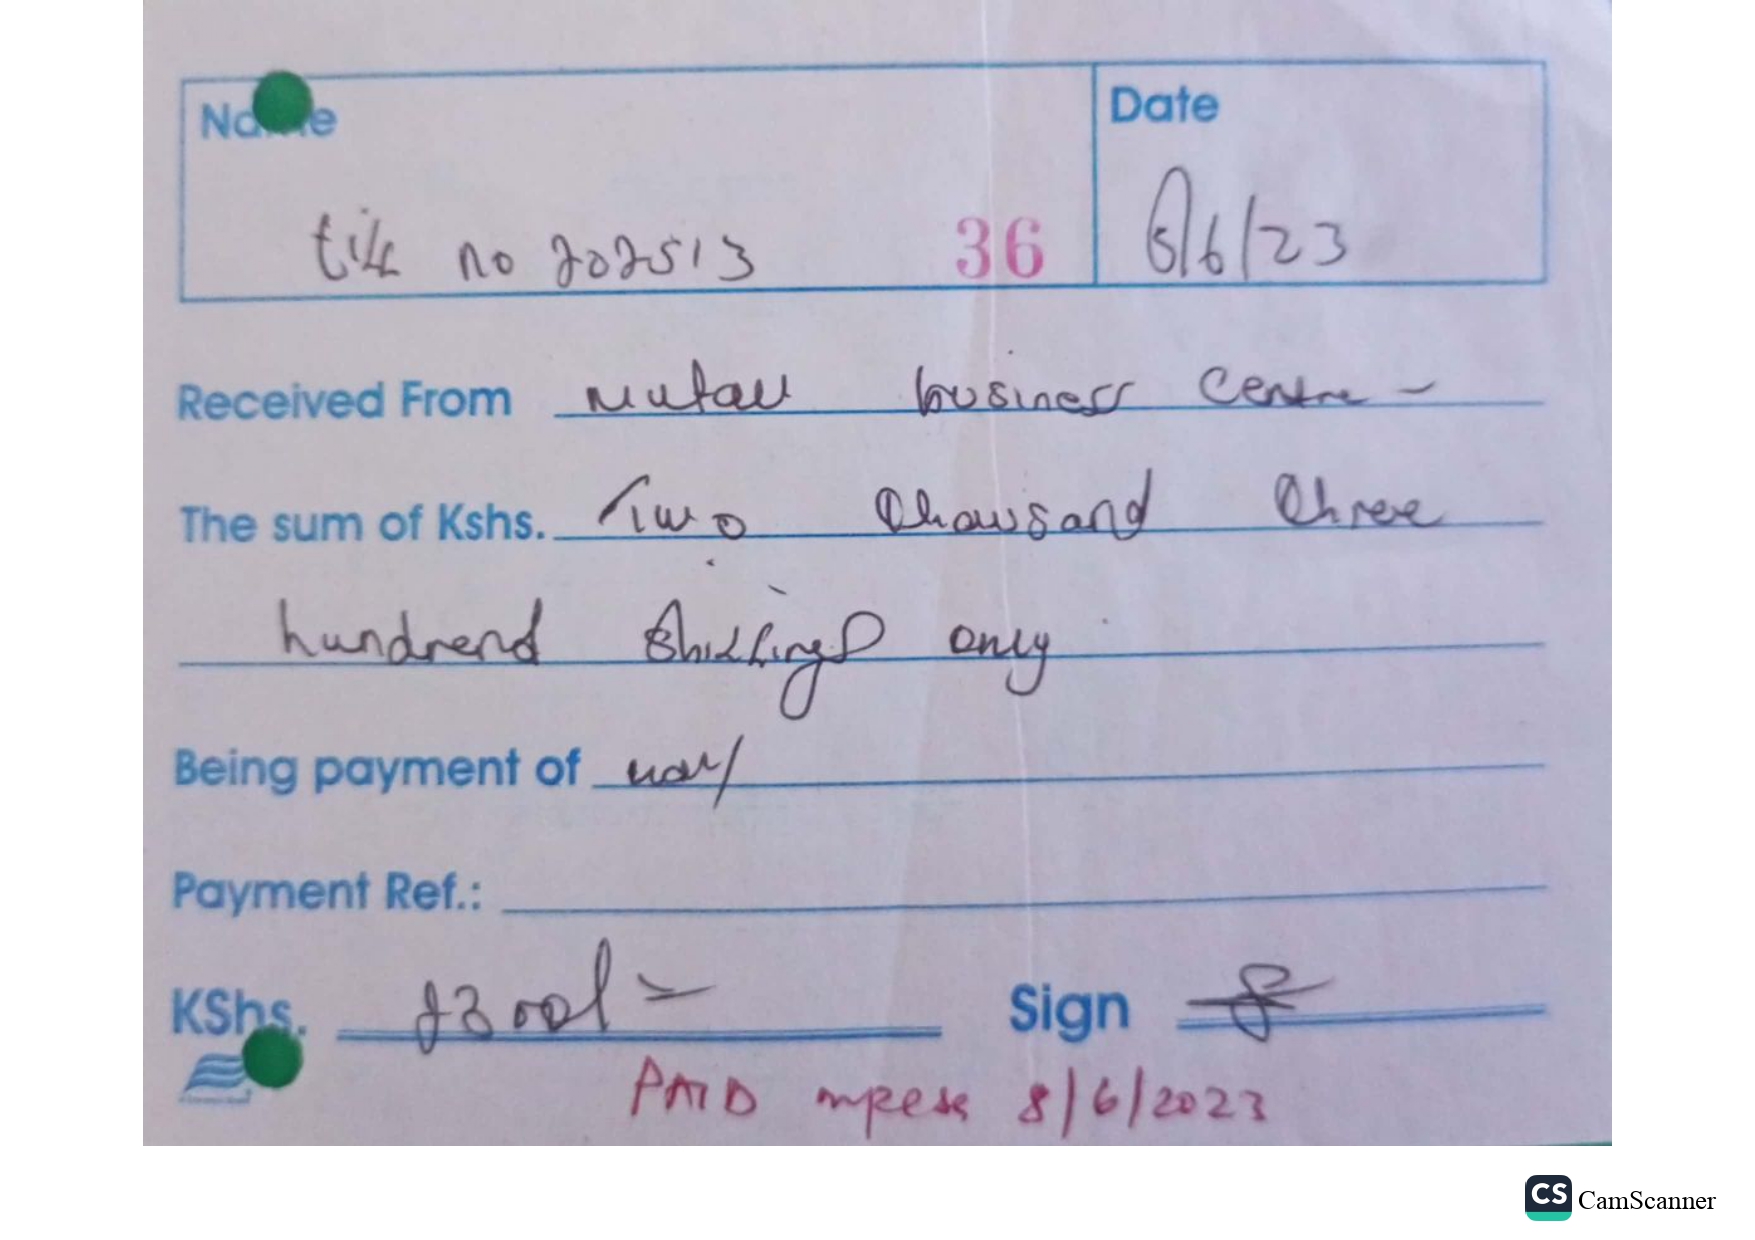 Name
Date
till no 202513 36 8/6/23
Received From Mutau business Centre -
The sum of Kshs. Two thousand three
hundrend shillings only
Being payment of
Payment Ref.:
KShs. 2300/= Sign
PAID mpesa 8/6/2023
CS CamScanner